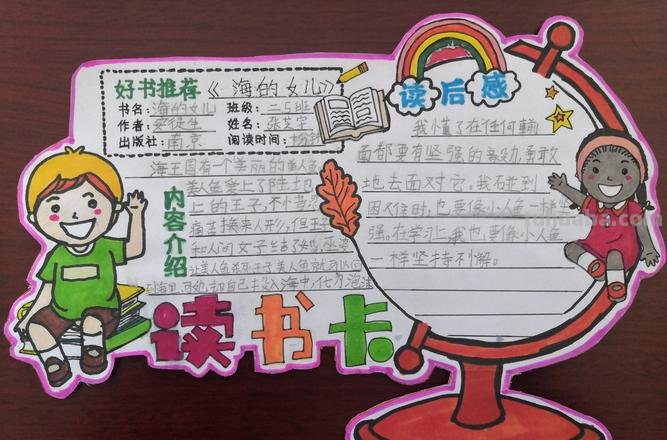 好书推荐《海的女儿》
书名：海的女儿 班级：二5班
作者：安徒生 姓名：张芝宁
出版社：南京 阅读时间：十分钟
内容介绍
海王国有一个美丽的美人鱼
美人鱼爱上了陆土地
上的王子，不小
痛苦换来人形，但王子
和人间女子结了婚，巫婆
让美人鱼杀死王子美人鱼就可以回
到海里，可她 自己投入海中，化为泡沫
读后感
我懂了在任何
面都要有坚强的 勇敢
地去面对它。我在碰到
困难时，也要像小人鱼一样坚
强。在学习上我也要像小人鱼
一样坚持不懈。
读书卡